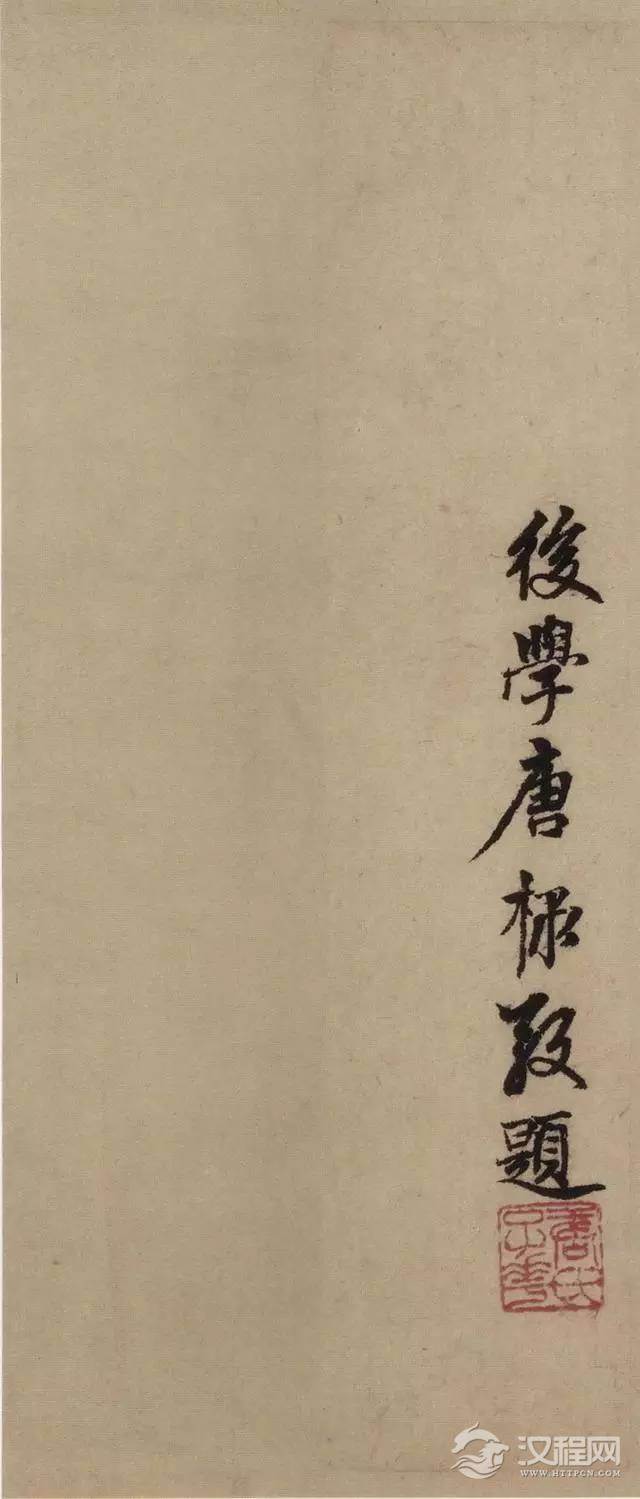 後學唐棣敬題
唐氏子華
汉程网
WWW.HTTPCN.COM